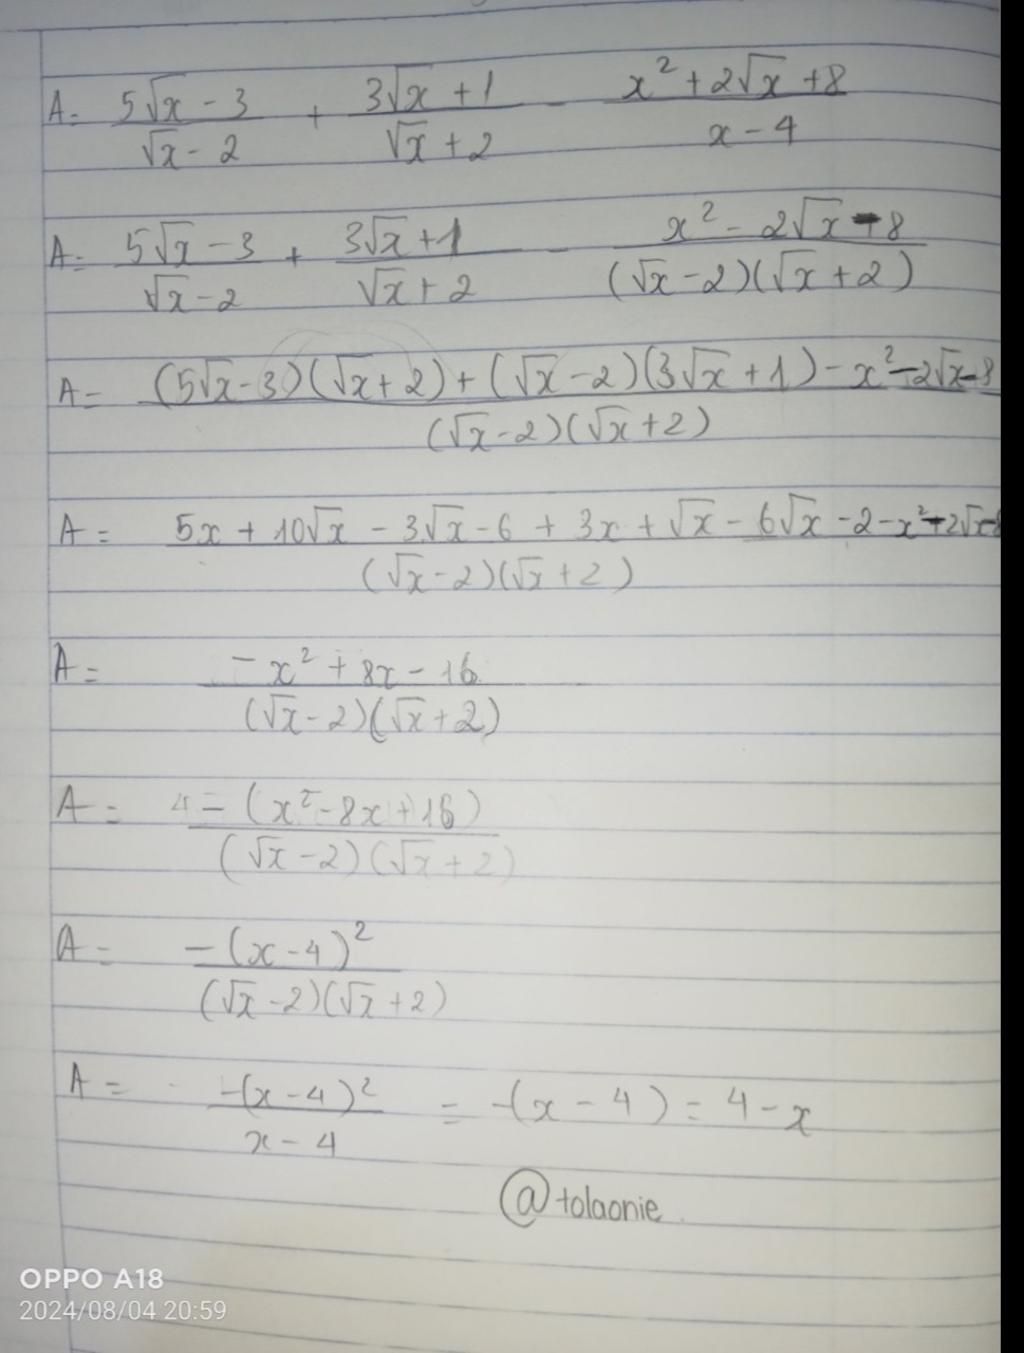 A = (5√x - 3)/(√x - 2) + (3√x + 1)/(√x + 2) - (x² + 2√x + 8)/(x - 4)
A = (5√x - 3)/(√x - 2) + (3√x + 1)/(√x + 2) - (x² - 2√x - 8)/((√x - 2)(√x + 2))
A = ((5√x - 3)(√x + 2) + (√x - 2)(3√x + 1) - x² - 2√x - 8)/((√x - 2)(√x + 2))
A = (5x + 10√x - 3√x - 6 + 3x + √x - 6√x - 2 - x² - 2√x - 8)/((√x - 2)(√x + 2))
A = (-x² + 8x - 16)/((√x - 2)(√x + 2))
A = -(x² - 8x + 16)/((√x - 2)(√x + 2))
A = -(x - 4)²/((√x - 2)(√x + 2))
A = -(x - 4)²/(x - 4) = -(x - 4) = 4 - x
@tolaonie
OPPO A18
2024/08/04 20:59